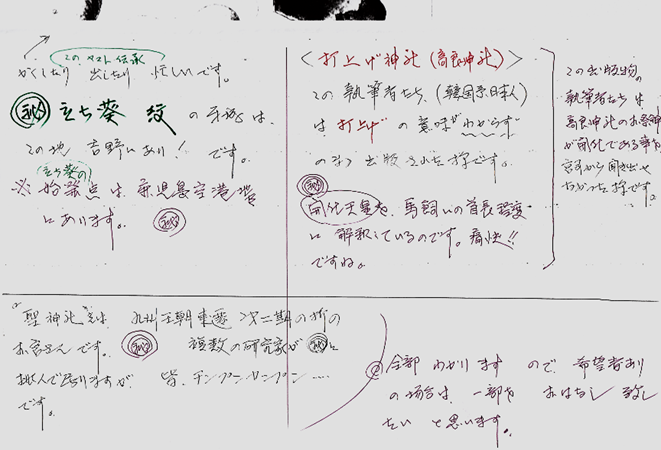 この ペスト 伝承
かくしたり 出したり 忙しいです。
㊙ 立ち葵 紋 の 手がかりは、
この地 吉野にあり! です。
立ち葵の
※ 始発点は 鹿児島空港
にあります。 ㊙
<打上げ神社(高良神社)>
この 執筆者たち、(韓国系日本人)
は 打上げ の 意味がわからず
のまま 出版された様です。
㊙
開化天皇を、馬飼いの首長程度
に 解釈しているのです。痛快!!
ですね。
この出版物の
執筆者たちは
高良神社のお祭神
が開化である事を
聞き出せ
なかった様です。
"聖神社"さんは、九州王朝東遷 第二期の
お宮さんです。 ㊙ 複数の研究家が ㊙ に
挑んで居りますが、 皆、チンプンカンプン....
です。
全部 わかります ので、希望者あり
の場合は、一部を おはなし 致し
たい と思います。